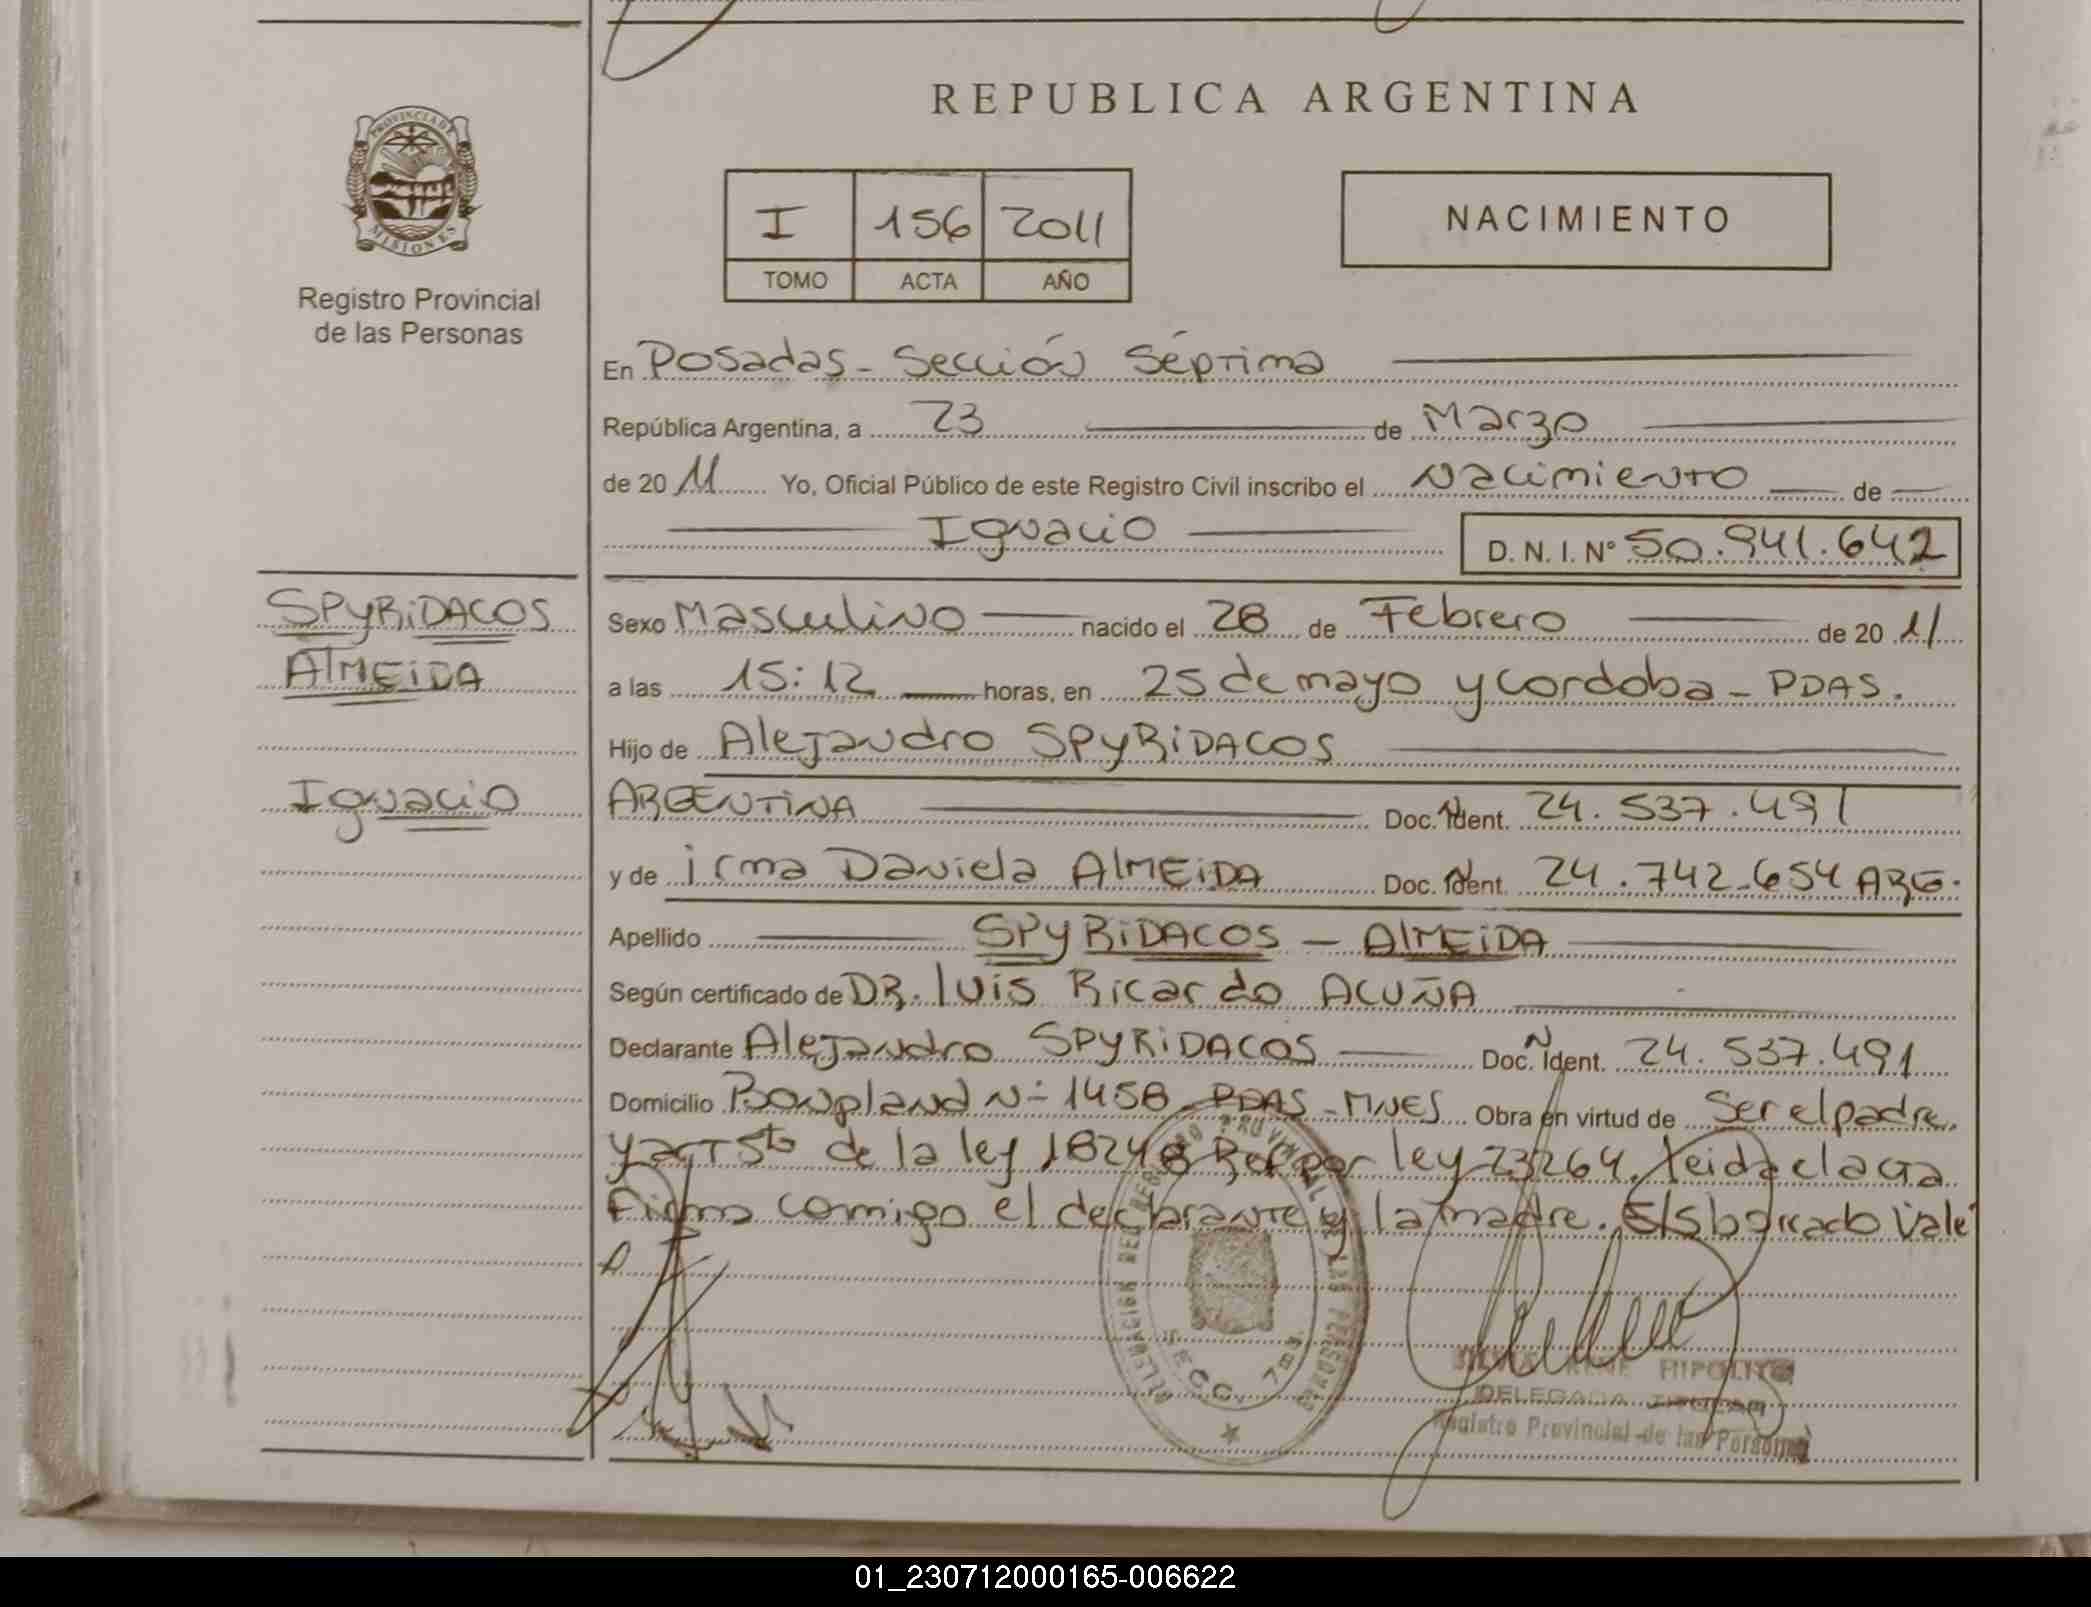 REPUBLICA ARGENTINA
PROVINCIA DE MISIONES
Registro Provincial
de las Personas
I 156 2011
TOMO ACTA AÑO
NACIMIENTO
En Posadas - Sección Séptima
República Argentina, a 23 de Marzo
de 20 11 Yo, Oficial Público de este Registro Civil inscribo el Nacimiento de
Ignacio D. N. I. N° 50.941.642
SPYRIDACOS
ALMEIDA
Ignacio
Sexo Masculino nacido el 28 de Febrero de 20 11
a las 15:12 horas, en 25 de mayo y cordoba - PDAS.
Hijo de Alejandro SPYRIDACOS
ARGENTINA Doc. Ident. 24.537.491
y de irma Daniela ALMEIDA Doc. Ident. 24.742.654 ARG.
Apellido SPYRIDACOS - ALMEIDA
Según certificado de DR. luis Ricardo ACUÑA
Declarante Alejandro SPYRIDACOS Doc. Ident. 24.537.491
Domicilio Bonpland N° 1458 - PDAS - MNES Obra en virtud de Ser el padre.
y art 5to de la ley 18248 Ref por ley 23264. Leida el acta
Firma comigo el declarante y la madre. E/S borrado Vale
DELEGACION REGISTRO PROVINCIAL DE LAS PERSONAS
SECC. 7ma
HIPOLITO
DELEGADA TITULAR
Registro Provincial de las Personas
01_230712000165-006622